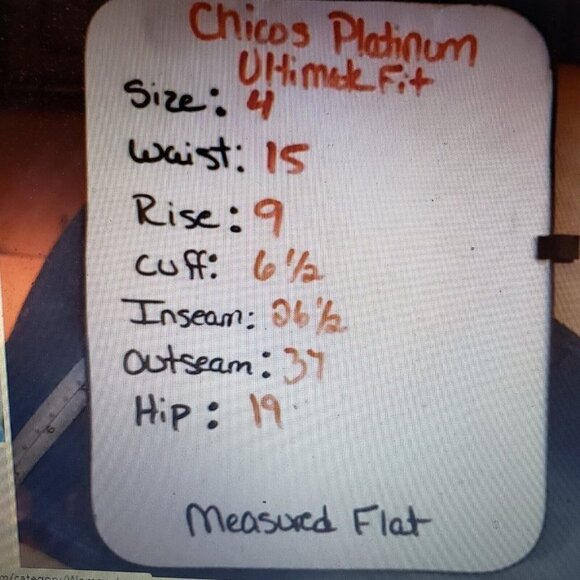 Chicos Platinum
Ultimate Fit
Size: 4
Waist: 15
Rise: 9
Cuff: 6 1/2
Inseam: 26 1/2
Outseam: 37
Hip: 19
Measured Flat